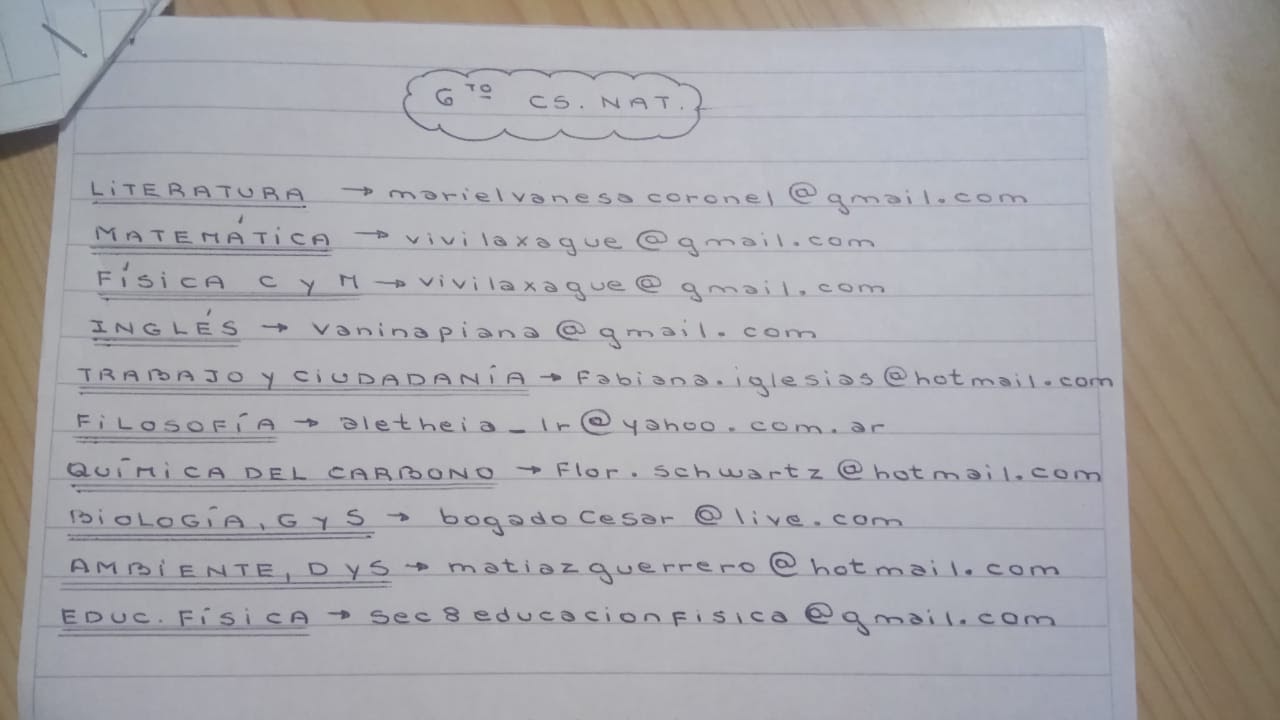 6TO CS. NAT.
LITERATURA → marielvanesacoronel@gmail.com
MATEMÁTICA → vivilaxague@gmail.com
FÍSICA C y M → vivilaxague@gmail.com
INGLÉS → vaninapiana@gmail.com
TRABAJO Y CIUDADANÍA → Fabiana.iglesias@hotmail.com
FILOSOFÍA → aletheia_lr@yahoo.com.ar
QUÍMICA DEL CARBONO → Flor.schwartz@hotmail.com
BIOLOGÍA, G y S → bogadocesar@live.com
AMBIENTE, D y S → matiazguerrero@hotmail.com
EDUC. FÍSICA → sec8educacionfisica@gmail.com